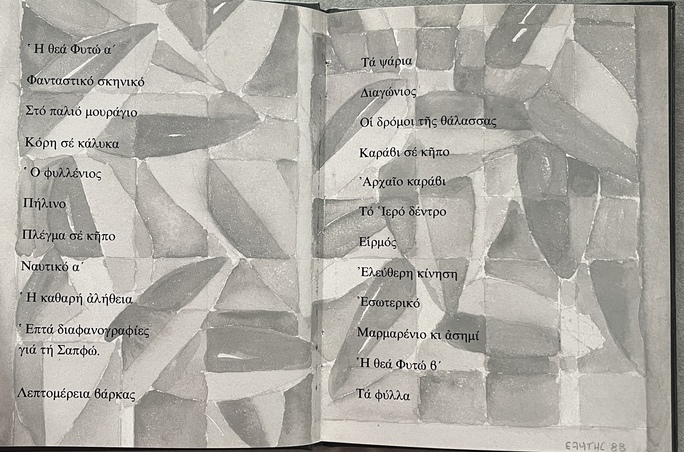 Ἡ θεά Φυτώ α΄
Φανταστικό σκηνικό
Στό παλιό μουράγιο
Κόρη σέ κάλυκα
Ὁ φυλλένιος
Πήλινο
Πλέγμα σέ κῆπο
Ναυτικό α΄
Ἡ καθαρή ἀλήθεια
Ἑπτά διαφανογραφίες
γιά τή Σαπφώ.
Λεπτομέρεια βάρκας
Τά ψάρια
Διαγώνιος
Οἱ δρόμοι τῆς θάλασσας
Καράβι σέ κῆπο
Ἀρχαῖο καράβι
Τό Ἱερό δέντρο
Εἱρμός
Ἐλεύθερη κίνηση
Ἐσωτερικό
Μαρμαρένιο κι ἀσημί
Ἡ θεά Φυτώ β΄
Τά φύλλα
ΕΛΥΤΗΣ 88